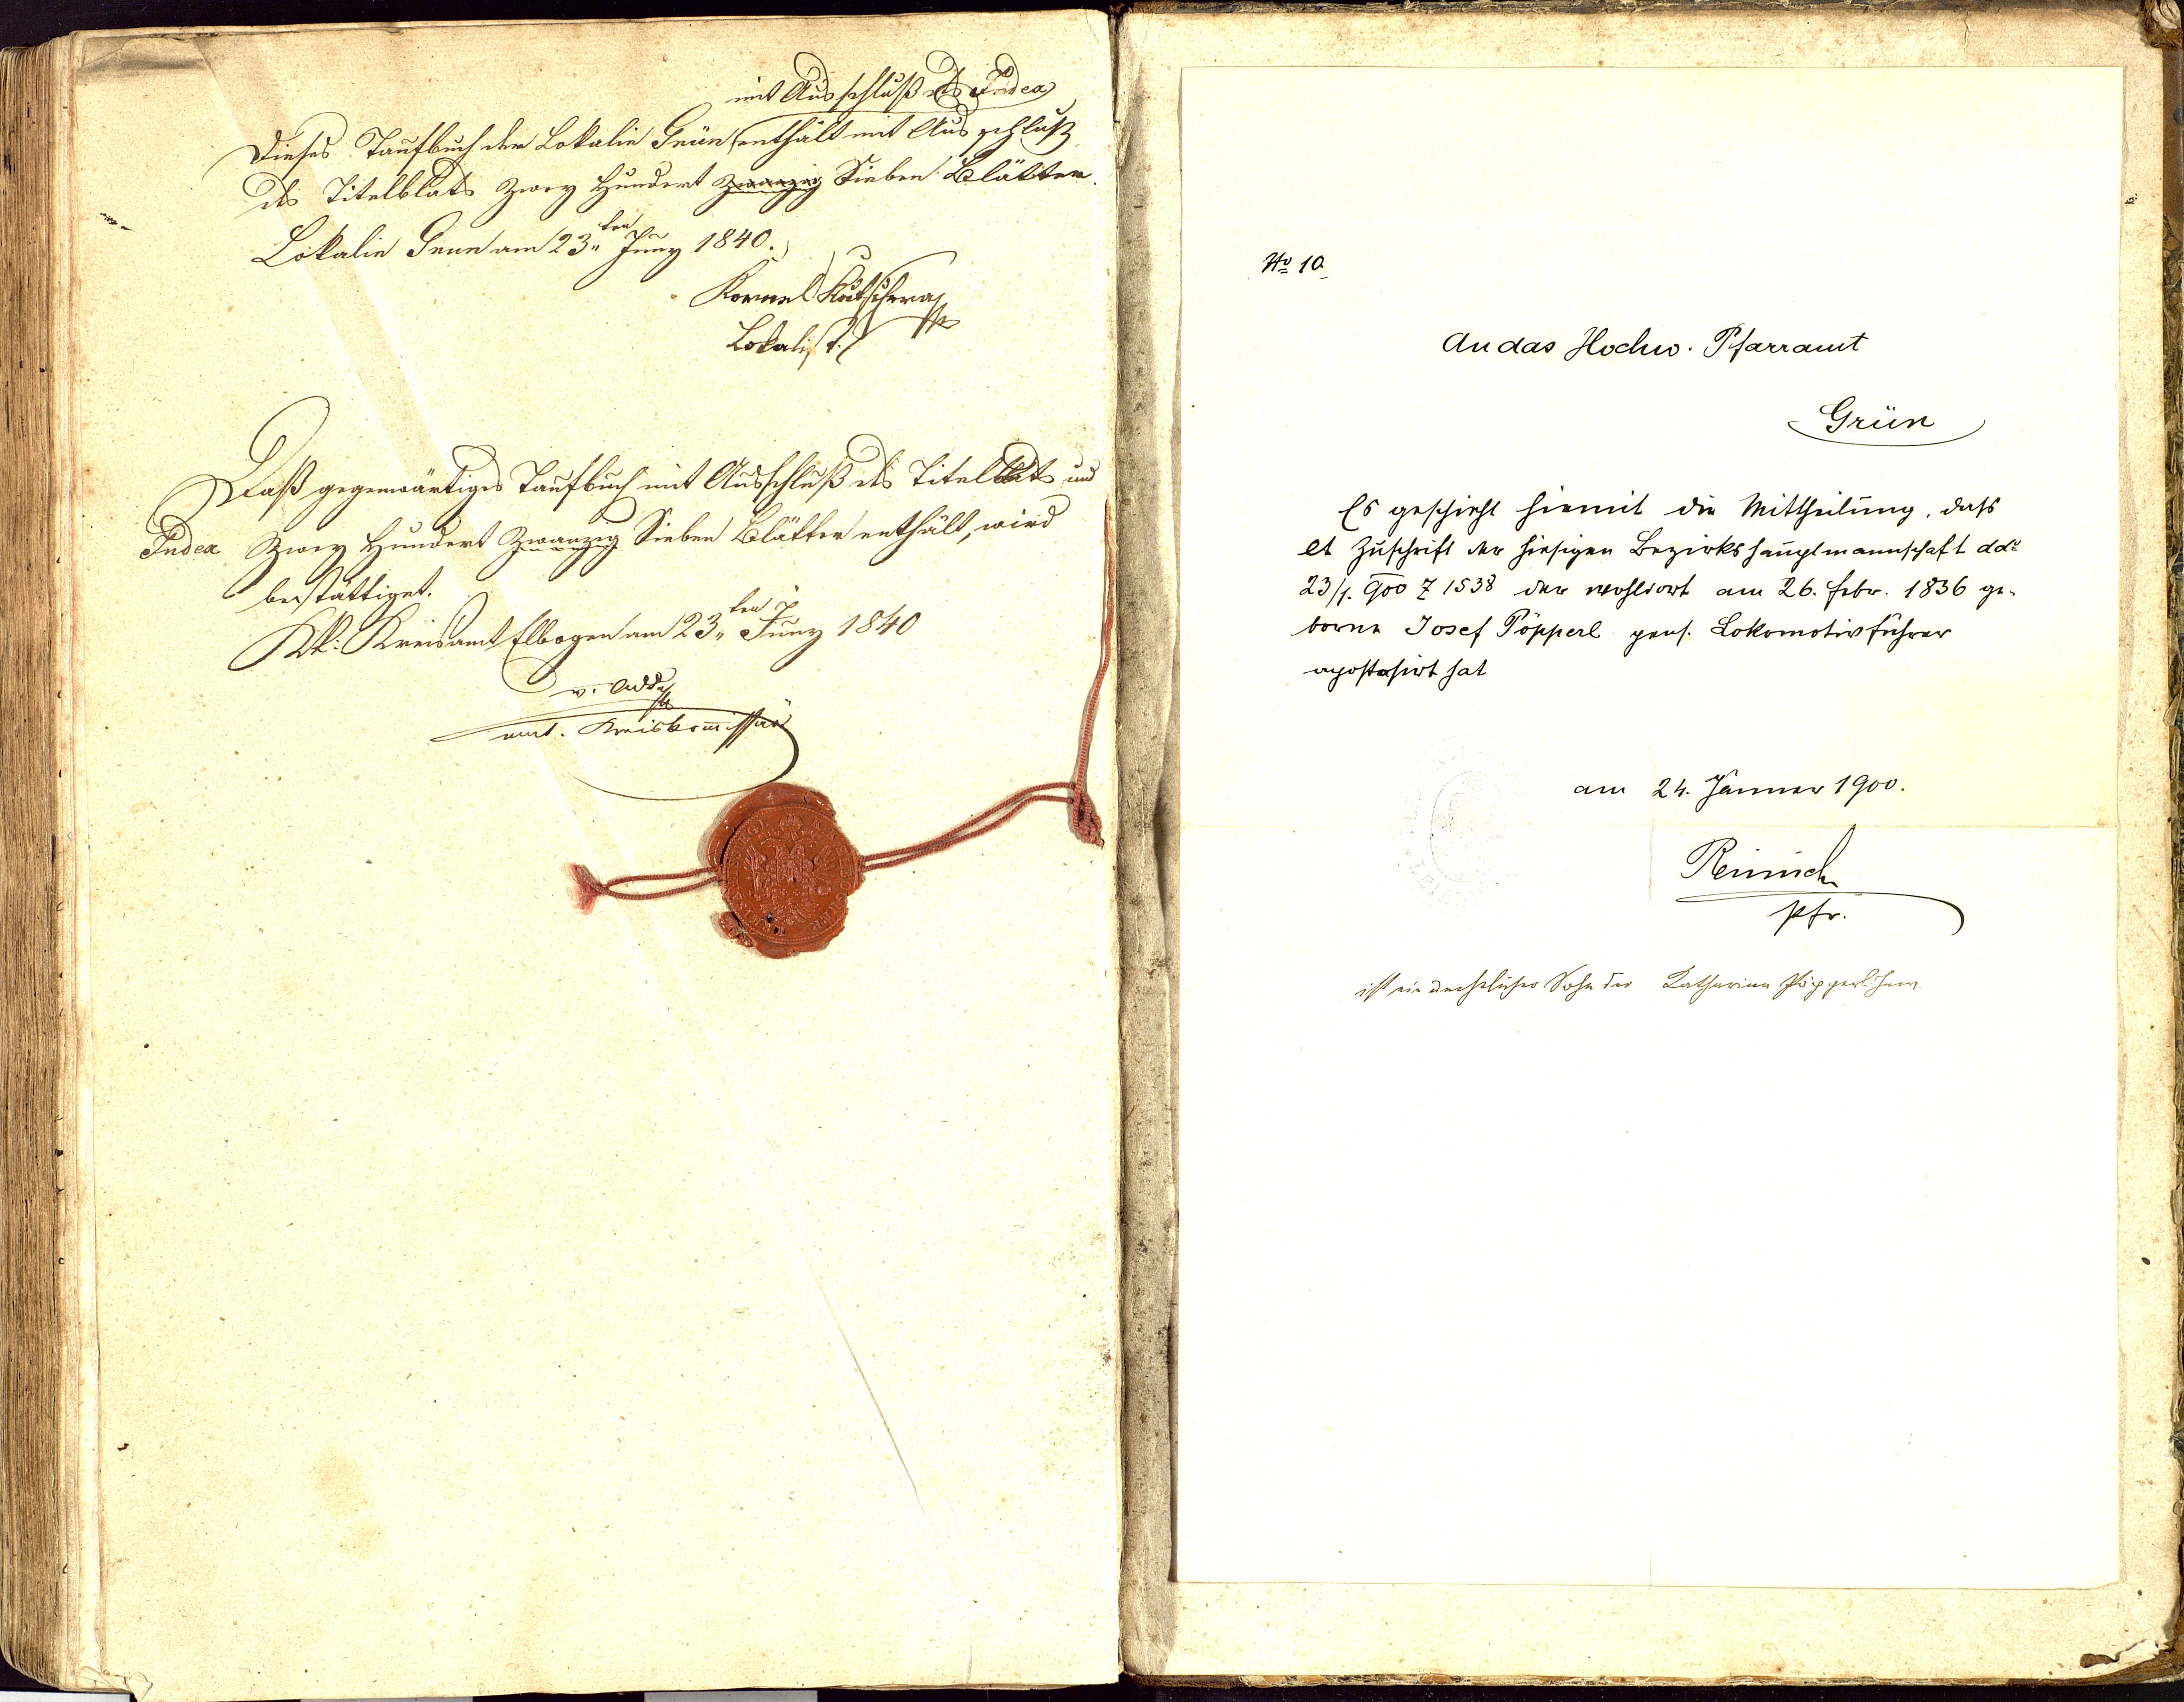 mit Ausschluß des Index
Dieses Taufbuch der Lokalie Grün enthält mit Ausschluß
des Titelblats Zwey Hundert Zwanzig Sieben Blätter.
Lokalie Grün am 23ten Juny 1840.
Kornel Kutschera
Lokalist.
Daß gegenwärtiges Taufbuch mit Ausschluß des Titelblats und
Index Zwey Hundert Zwanzig Sieben Blätter enthält, wird
bestättiget.
KK: Kreisamt Elbogen am 23ten Juny 1840
v.
Kreiskommissär
No 10
An das Hochw. Pfarramt
Grün
Es geschieht hiemit die Mittheilung, dass
lt Zuschrift der hiesigen Bezirkshauptmannschaft ddo
23/1. 900 Z 1538 der am 26. Febr. 1836 ge-
borne Josef Pöpperl pens. Lokomotivführer
apostasirt hat
am 24. Jänner 1900.
Pfr.
ist ein unehelicher Sohn der Katharina Pöpperl